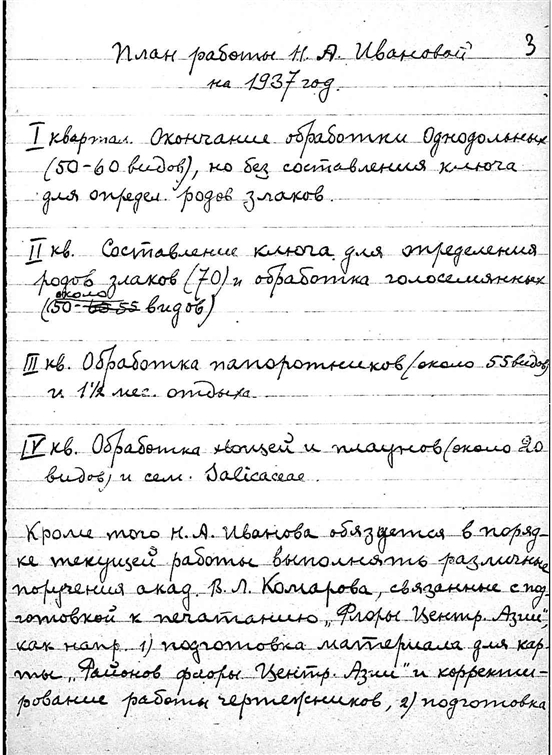 3
План работы Н. А. Ивановой
на 1937 год.
I квартал. Окончание обработки Однодольных
(50-60 видов), но без составления ключа
для определ. родов злаков.
II кв. Составление ключа для определения
родов злаков (70) и обработка голосемянных
около
(50-60 55 видов)
III кв. Обработка папоротников (около 55 видов)
и 1 1/2 мес. отдыха.
IV кв. Обработка хвощей и плаунов (около 20
видов) и сем. Salicaceae.
Кроме того Н. А. Иванова обязуется в поряд-
ке текущей работы выполнять различные
поручения акад. В. Л. Комарова, связанные с под-
готовкой к печатанию „Флоры Центр. Азии",
как напр. 1) подготовка материала для кар-
ты „Районов флоры Центр. Азии" и корректи-
рование работы чертежников, 2) подготовка